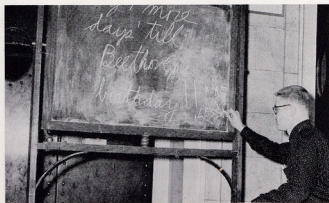 more
days' till
Beethoven's
birthday!!